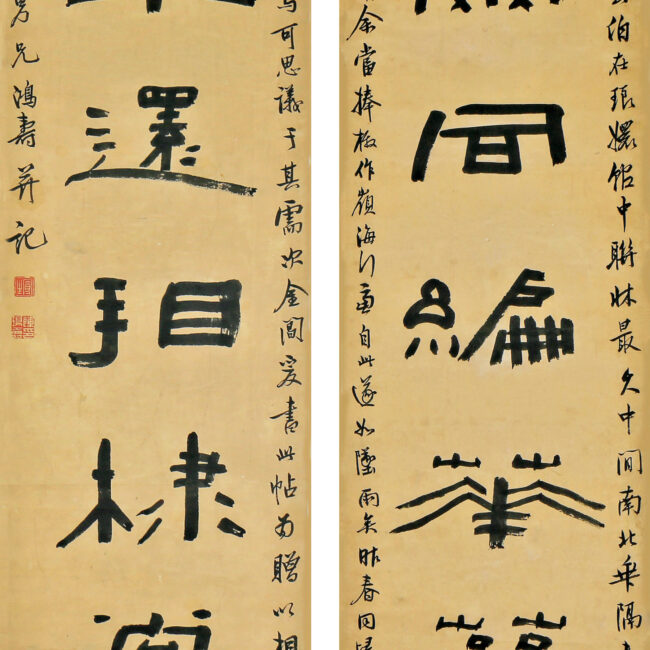 泊在琅嬛館中聯牀最久中間南北乖隔
同編華
余當捧檄作嶺海行意自此遂如墜雨矣昨春回
可思議于其需次金閶爰書此帖為贈以相
還相棣
兄鴻壽并記